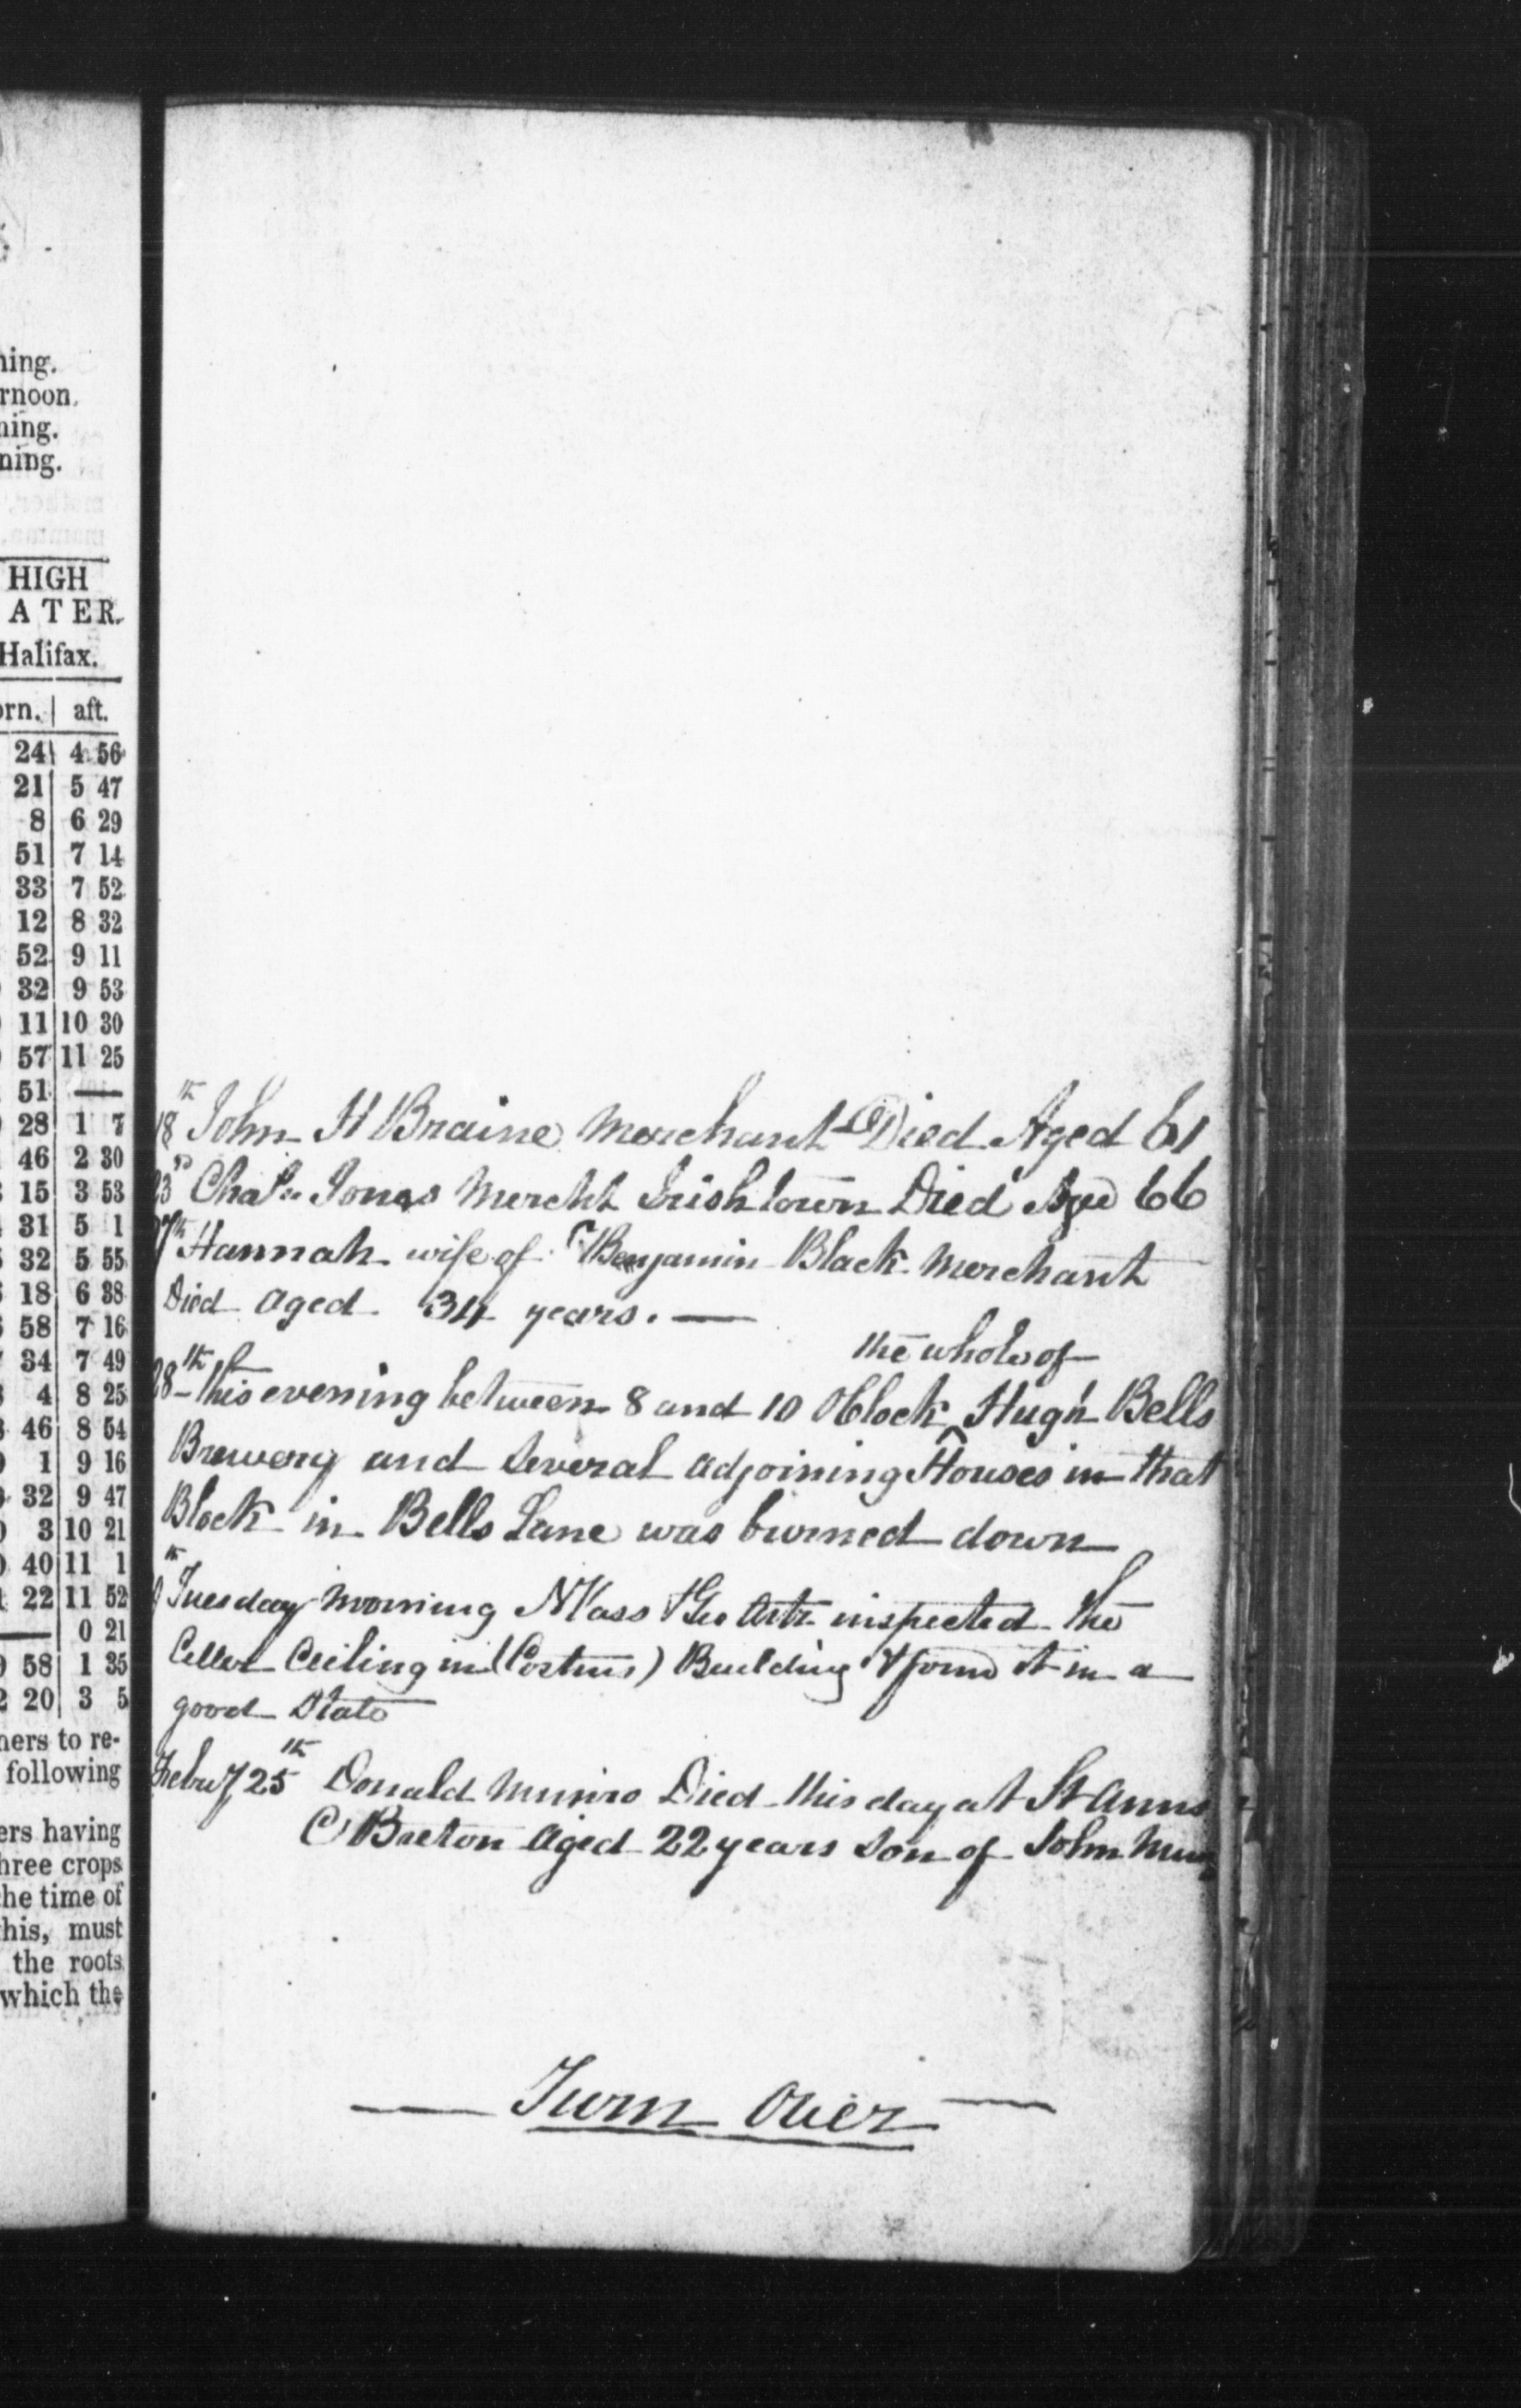 ning.
rnoon.
ning.
ning.
HIGH
ATER.
Halifax.
orn. | aft.
24 | 4 56
21 | 5 47
8 | 6 29
51 | 7 14
33 | 7 52
12 | 8 32
52 | 9 11
32 | 9 53
11 | 10 30
57 | 11 25
51 | —
28 | 1 7
46 | 2 30
15 | 3 53
31 | 5 1
32 | 5 55
18 | 6 38
58 | 7 16
34 | 7 49
4 | 8 25
46 | 8 54
1 | 9 16
32 | 9 47
3 | 10 21
40 | 11 1
22 | 11 52
— | 0 21
58 | 1 35
20 | 3 5
ners to re-
following
ers having
hree crops
the time of
this, must
the roots
which the
18th John H Braine Merchant Died Aged 61
23d Chas Jones Mercht Irishtown Died Age 66
27th Hannah wife of Benjamin Black Merchant
Died aged 34 years. —
the whole of
28th This evening between 8 and 10 Oclock ^ Hugh Bells
Brewery and Several adjoining Houses in that
Block in Bells Lane was burned down
th Tuesday Morning inspected the
Celler Ceiling in Building & found it in a
good State
Febuy 25th Donald Munro Died this day at St Anns
C Breton Aged 22 years Son of John
— Turn Over —